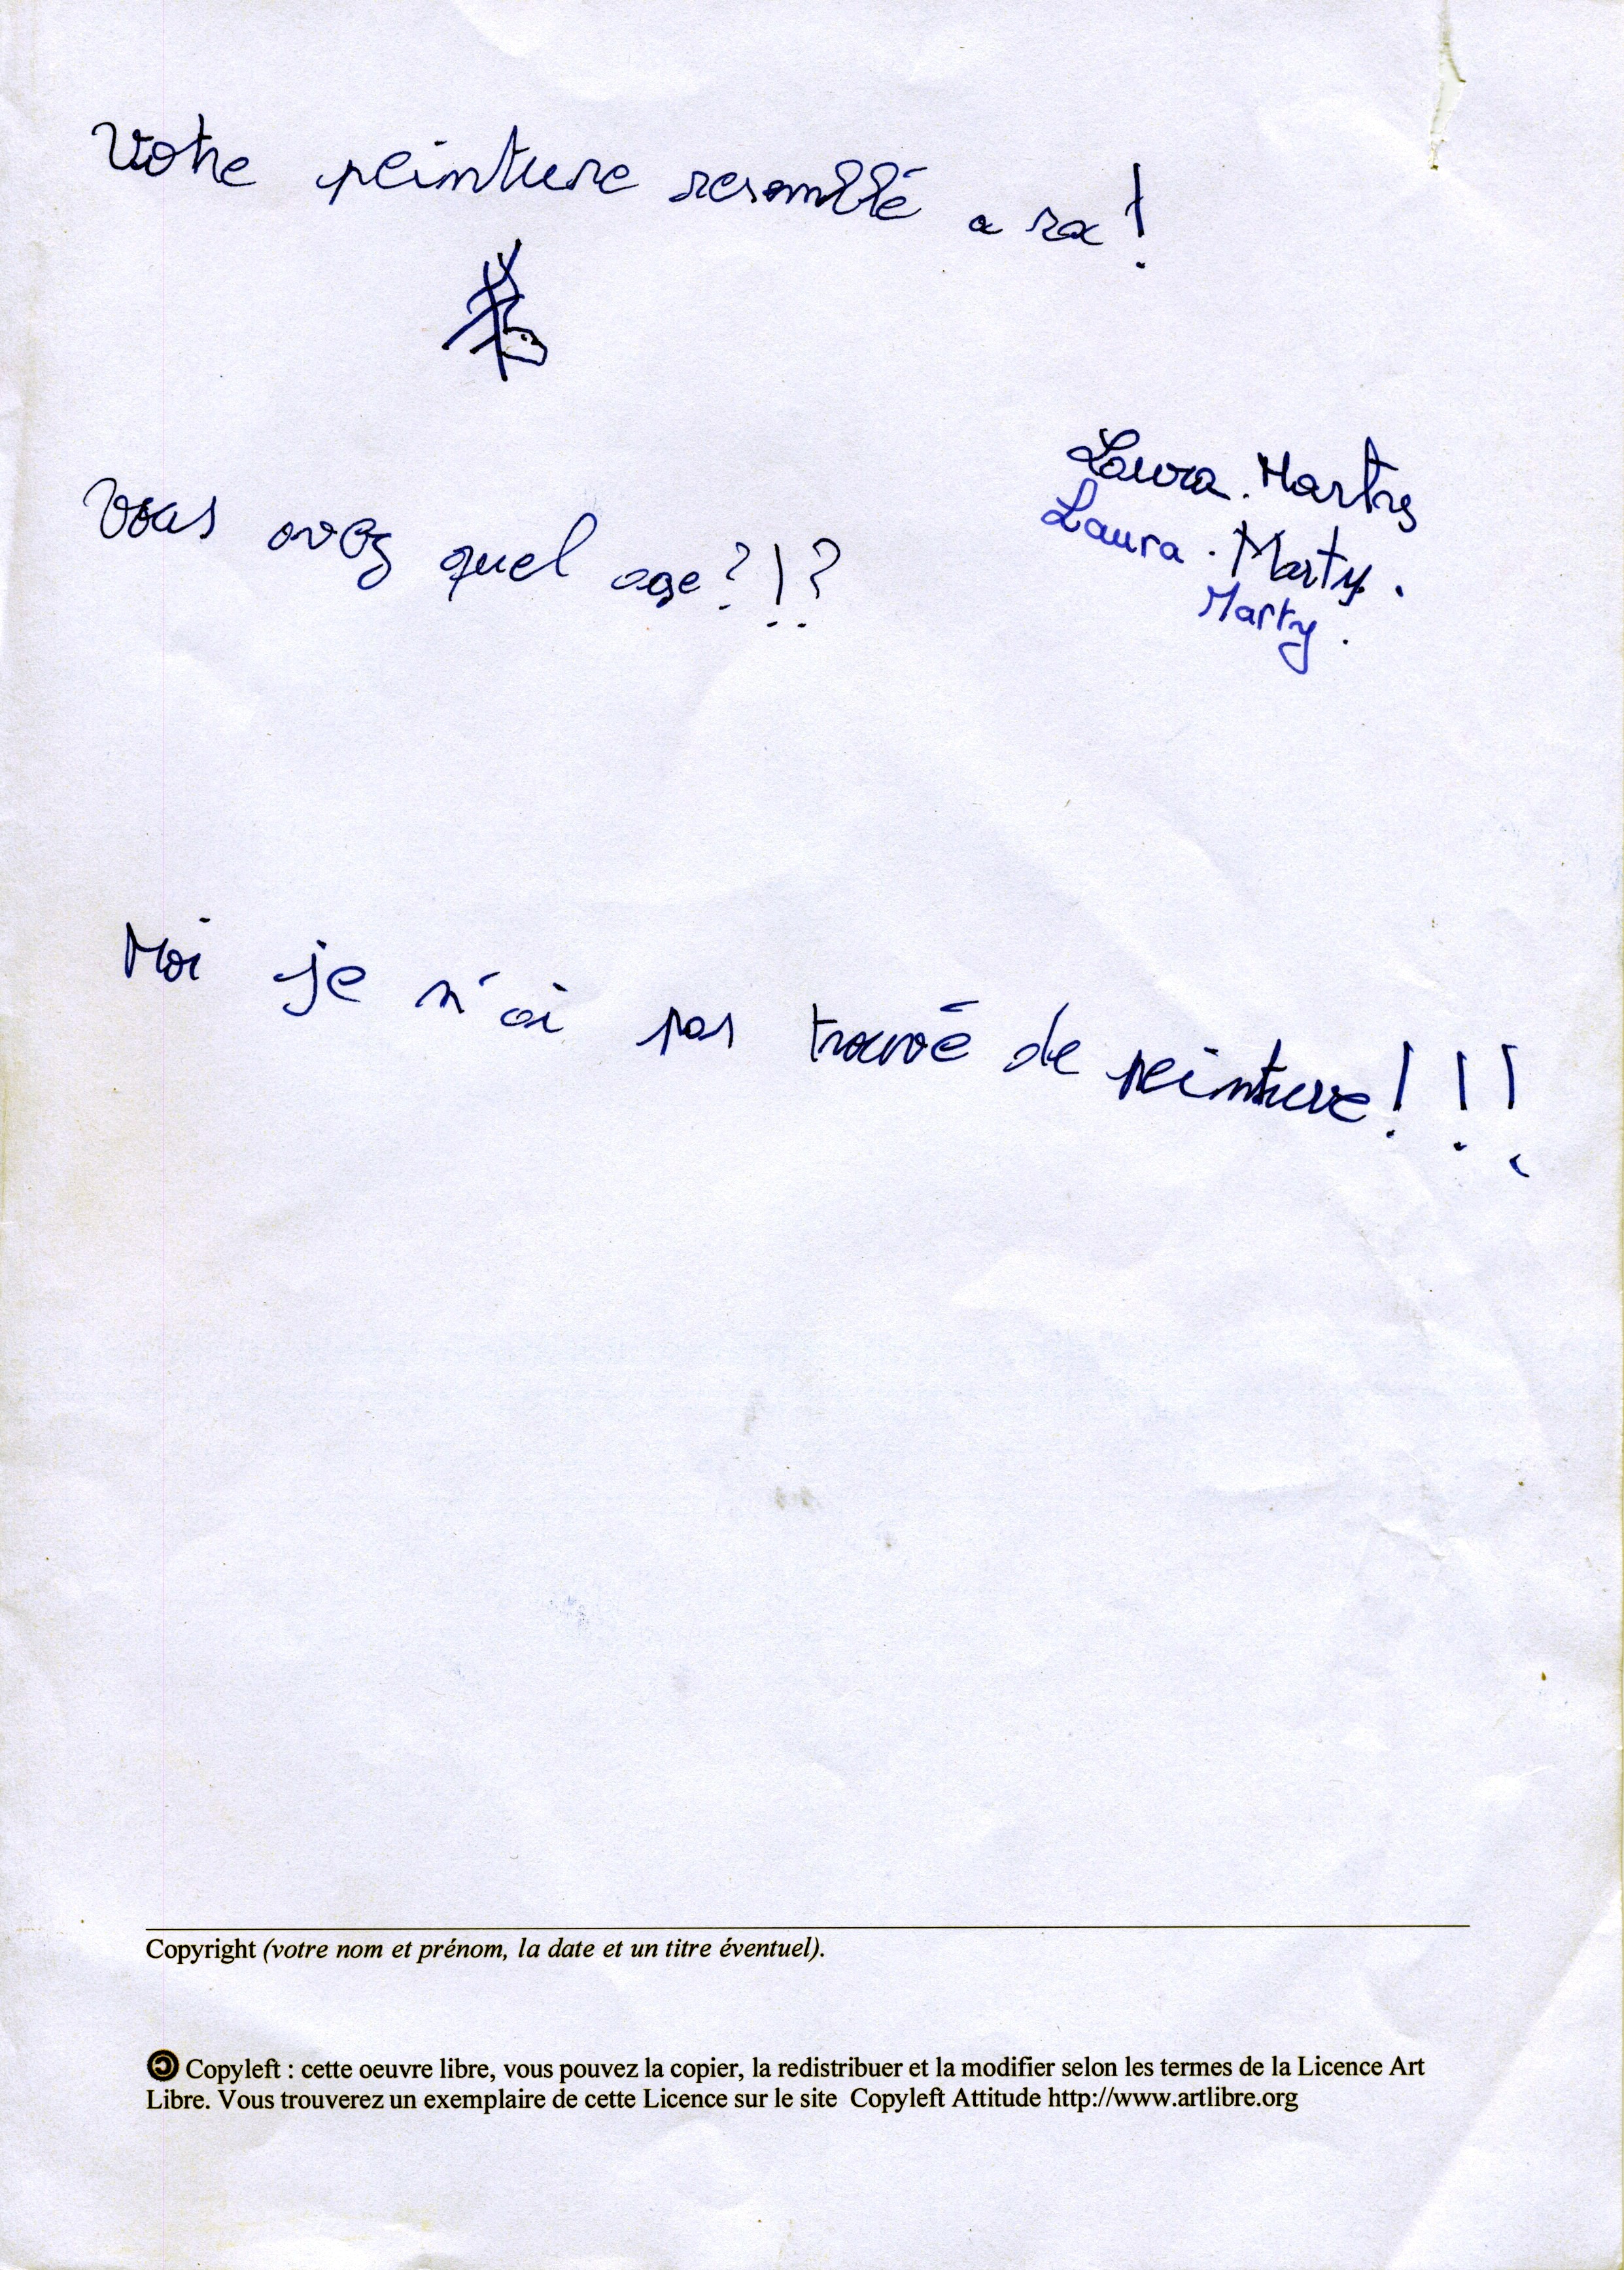 Votre peinture resemblé a sa !
Laura. Marty
Laura. Marty.
Marty.
Vous avez quel age ? ! ?
Moi je n'ai pas trouvé de peinture ! ! !
Copyright (votre nom et prénom, la date et un titre éventuel).
Copyleft : cette oeuvre libre, vous pouvez la copier, la redistribuer et la modifier selon les termes de la Licence Art
Libre. Vous trouverez un exemplaire de cette Licence sur le site Copyleft Attitude http://www.artlibre.org